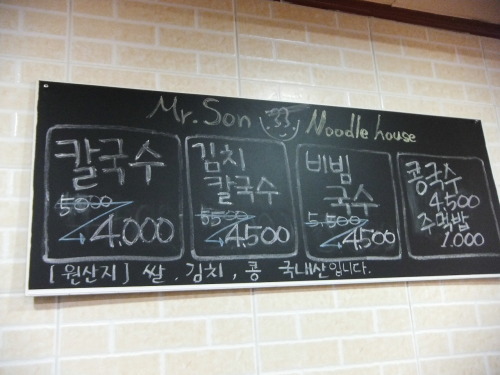 Mr. Son Noodle house
칼국수
5000
4,000
김치
칼국수
5500
4,500
비빔
국수
5,500
4,500
콩국수
4,500
주먹밥
1,000
[원산지] 쌀, 김치, 콩 국내산입니다.